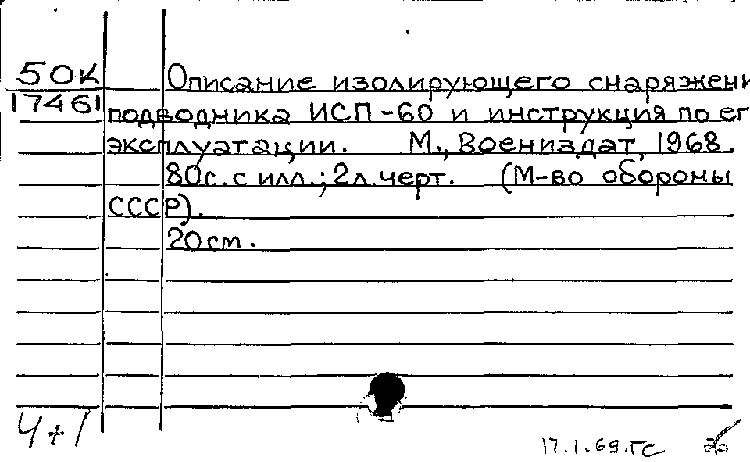 50К
17461
Описание изолирующего снаряжени
подводника ИСП-60 и инструкция по ег
эксплуатации. М., Воениздат, 1968.
80с. с илл.; 2л. черт. (М-во обороны
СССР).
20 см.
4+1
17.1.69.ГС